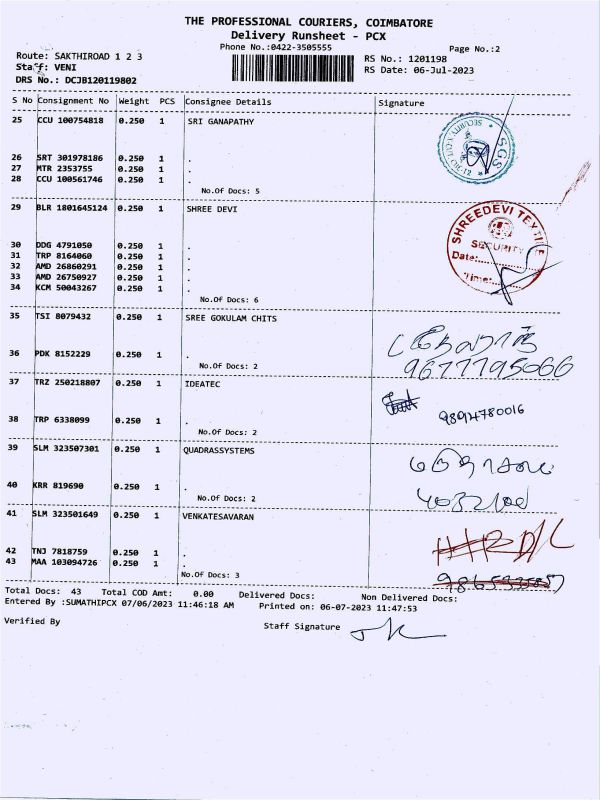 THE PROFESSIONAL COURIERS, COIMBATORE
Delivery Runsheet - PCX
Phone No.:0422-3505555
Page No.:2
Route: SAKTHIROAD 1 2 3
RS No.: 1201198
Staff: VENI
RS Date: 06-Jul-2023
DRS No.: DCJB120119802
S No Consignment No Weight PCS Consignee Details Signature
25 CCU 100754818 0.250 1 SRI GANAPATHY
SGS
26 SRT 301978186 0.250 1 .
27 MTR 2353755 0.250 1 .
28 CCU 100561746 0.250 1 .
No.Of Docs: 5
29 BLR 1801645124 0.250 1 SHREE DEVI
SHREEDEVI TEXTILE
SECURITY
Date:
Time:
30 DDG 4791050 0.250 1 .
31 TRP 8164060 0.250 1 .
32 AMD 26860291 0.250 1 .
33 AMD 26750927 0.250 1 .
34 KCM 50043267 0.250 1 .
No.Of Docs: 6
35 TSI 8079432 0.250 1 SREE GOKULAM CHITS
36 PDK 8152229 0.250 1 .
9677795066
No.Of Docs: 2
37 TRZ 250218807 0.250 1 IDEATEC
9894780016
38 TRP 6338099 0.250 1 .
No.Of Docs: 2
39 SLM 323507301 0.250 1 QUADRASSYSTEMS
40 KRR 819690 0.250 1 .
No.Of Docs: 2
41 SLM 323501649 0.250 1 VENKATESAVARAN
D/L
42 TNJ 7818759 0.250 1 .
43 MAA 103094726 0.250 1 .
No.Of Docs: 3
Total Docs: 43 Total COD Amt: 0.00 Delivered Docs: Non Delivered Docs:
Entered By :SUMATHIPCX 07/06/2023 11:46:18 AM Printed on: 06-07-2023 11:47:53
Verified By
Staff Signature